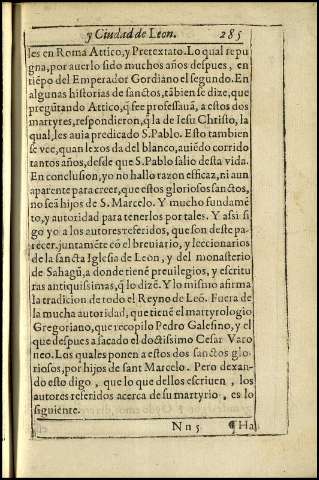 y Ciudad de Leon. 285
les en Roma Attico, y Pretextato. Lo qual repu
gna, por auerlo sido muchos años despues, en
tiẽpo del Emperador Gordiano el segundo. En
algunas historias de sanctos, tãbien se dize, que
pregũtando Attico, q̃ fee professauã, a estos dos
martyres, respondieron, q̃ la de Iesu Christo, la
qual, les auia predicado S. Pablo. Esto tambien
se vee, quan lexos da del blanco, auiẽdo corrido
tantos años, desde que S. Pablo salio desta vida.
En conclusion, yo no hallo razon efficaz, ni aun
aparente para creer, que estos gloriosos sanctos,
no seã hijos de S. Marcelo. Y mucho fundamẽ
to, y autoridad para tenerlos por tales. Y assi si
go yo a los autores referidos, que son deste pa-
recer. juntamẽte cõ el breuiario, y leccionarios
de la sancta Iglesia de Leon, y del monasterio
de Sahagũ, a donde tienẽ preuilegios, y escritu
ras antiquissimas, q̃ lo dizẽ. Y lo mismo afirma
la tradicion de todo el Reyno de Leõ. Fuera de
la mucha autoridad, que tienẽ el martyrologio
Gregoriano, que recopilo Pedro Galesino, y el
que despues a sacado el doctissimo Cesar Varo
neo. Los quales ponen a estos dos sanctos glo-
riosos, por hijos de sant Marcelo. Pero dexan-
do esto digo, que lo que dellos escriuen, los
autores referidos acerca de su martyrio, es lo
siguiente.
Nn 5 ¶ Ha